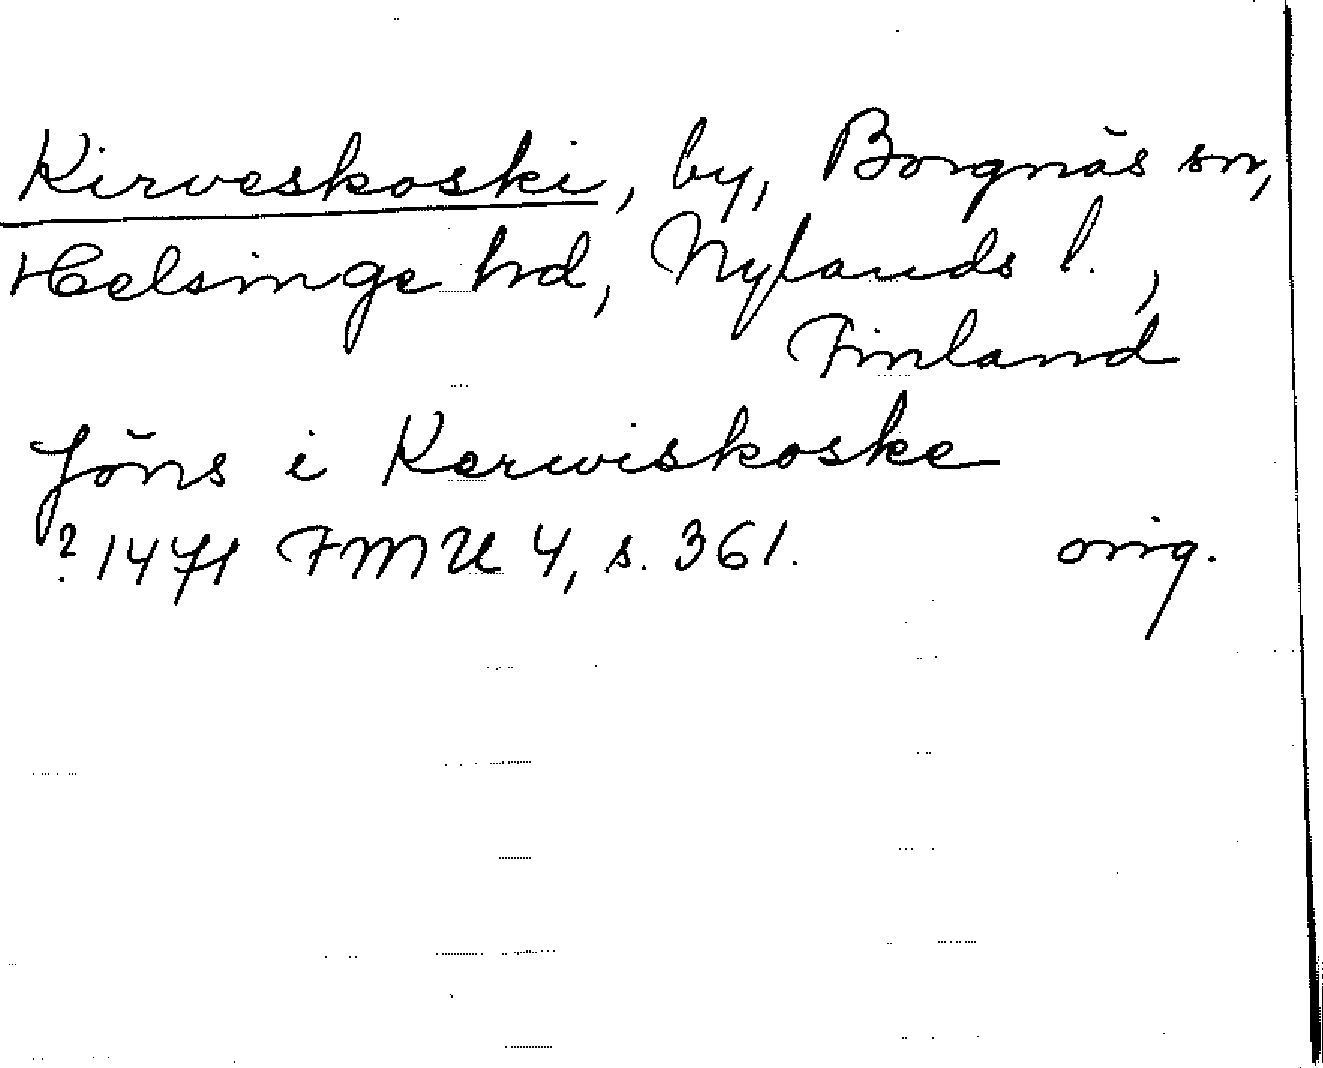 Kirveskoski, by, Borgnäs sn,
Helsinge hd, Nylands l.,
Finland
Jöns i Kerwiskoske
? 1471 FMU 4, s. 361. orig.